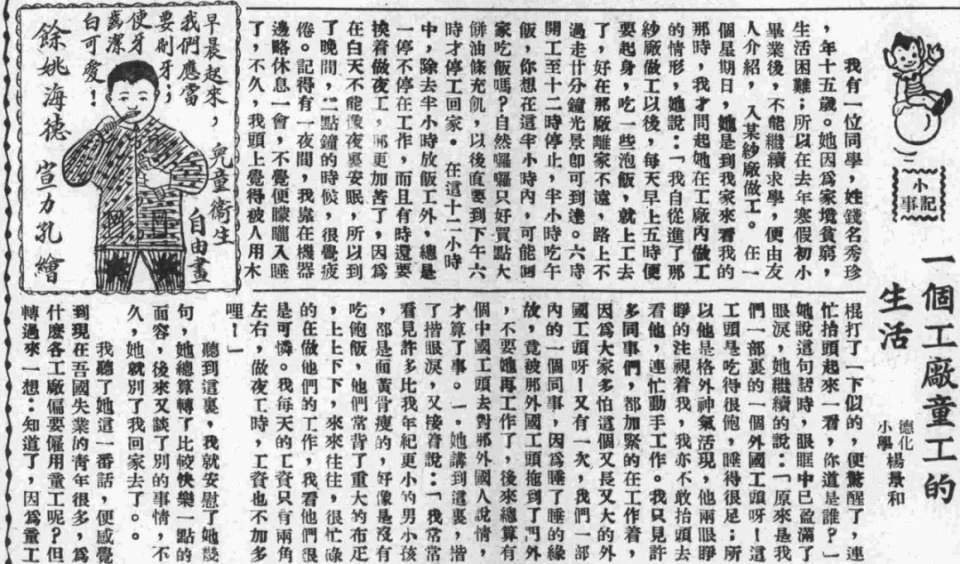 小記事
一個工廠童工的
生活
德化
小學
楊景和
我有一位同學，姓錢名秀珍
，年十五歲。她因爲家境貧窮，
生活困難；所以在去年寒假初小
畢業後，不能繼續求學，便由友
人介紹，入某紗廠做工。在一
個星期日，她是到我家來看我的
那時，我才問起她在工廠內做工
的情形，她說：「我自從進了那
紗廠做工以後，每天早上五時便
要起身，吃一些泡飯，就上工去
了，好在那廠離家不遠，路上不
過走廿分鐘光景卽可到達。六時
開工至十二時停止，半小時吃午
飯，你想在這半小時內，可能回
家吃飯嗎？自然囉囉只好買點大
餅油條充飢，以後直要到下午六
時才停工回家。在這十二小時
中，除去半小時放飯工外，總是
一停不停在工作，而且有時還要
挨着做夜工，那更加苦了，因爲
在白天不能像夜裏安眠，所以到
了晚間，二點鐘的時候，很覺疲
倦。記得有一夜間，我靠在機器
邊略休息一會，不覺便矇矓入睡
了，不久，我頭上覺得被人用木
棍打了一下似的，便驚醒了，連
忙抬頭起來一看，你道是誰？」
她說這句話時，眼眶中已盈滿了
眼淚，她繼續的說：「原來是我
們一部裏的一個外國工頭呀！這
工頭是吃得很飽，睡得很足；所
以他是格外神氣活現，他兩眼睜
睜的注視着我，我亦不敢抬頭去
看他，連忙動手工作。我只見許
多同事們，都加緊的在工作着，
因爲大家多怕這個又長又大的外
國工頭呀！又有一次，我們一部
內的一個同事，因爲睡了睡的緣
故，竟被那外國工頭拖到了門外
，不要她再工作了，後來總算有
個中國工頭去對那外國人說情，
才算了事。一，她講到這裏，揩
了揩眼淚，又接着說：「我常常
看見許多比我年紀更小的男小孩
，都是面黃骨瘦的，好像是沒有
吃飽飯，他們常背了重大的布疋
，上上下下，來來往往，很忙碌
的在做他們的工作，我看他們很
是可憐。我每天的工資只有兩角
左右，做夜工時，工資也不加多
哩！」
聽到這裏，我就安慰了她幾
句，她總算轉了比較快樂一點的
面容，後來又談了別的事情，不
久，她就別了我回家去了。
我聽了她這一番話，便感覺
到現在吾國失業的青年很多，爲
什麽各工廠偏要僱用童工呢？但
轉過來一想：知道了，因爲童工
兒童衛生
自由畫
早晨起來，
我們應當
要刷牙；
使牙
齒潔
白可愛！
餘姚海德 宣力孔繪